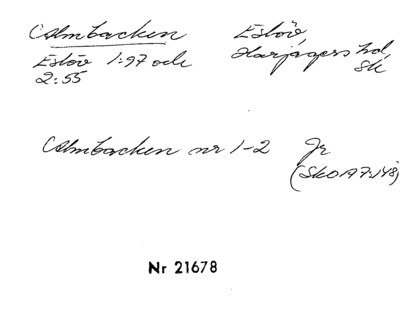 Almbacken Eslöv,
Eslöv 1:97 och Harjagers hd,
2:55 Sk
Almbacken nr 1-2 Jr
(SkO A 7:148)
Nr 21678